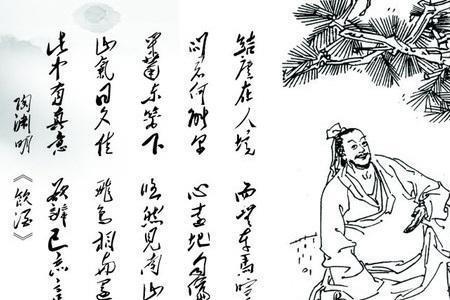 结庐在人境 而无车马喧
问君何能尔 心远地自偏
采菊东篱下 悠然见南山
山气日夕佳 飞鸟相与还
此中有真意 欲辩已忘言
陶渊明《饮酒》